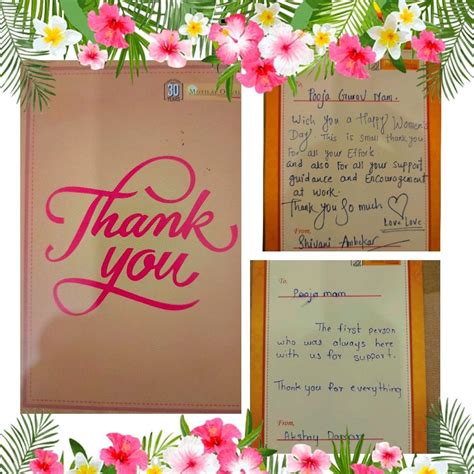 Thank
you
30
YEARS
To
Pooja Gurav Mam.
Wish you a Happy Women's
Day This is small thank you
For all your Efforts
and also for all your support
guidance and Encouragement
at work.
Thank you So much
Love Love
From,
Shivani
To
Pooja mam
The first person
who was always here
with us for support.
Thank you for everything
From,
Akshay